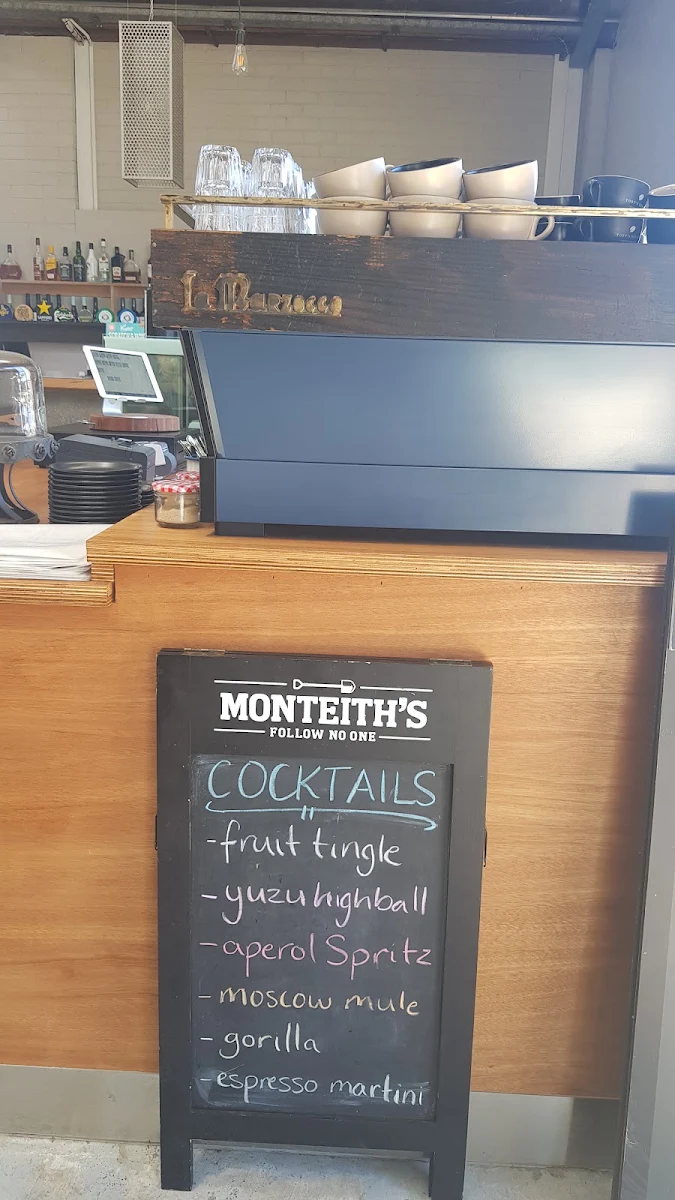 La Marzocco
MONTEITH'S
FOLLOW NO ONE
COCKTAILS
-fruit tingle
-yuzu highball
-aperol Spritz
-moscow mule
-gorilla
-espresso martini